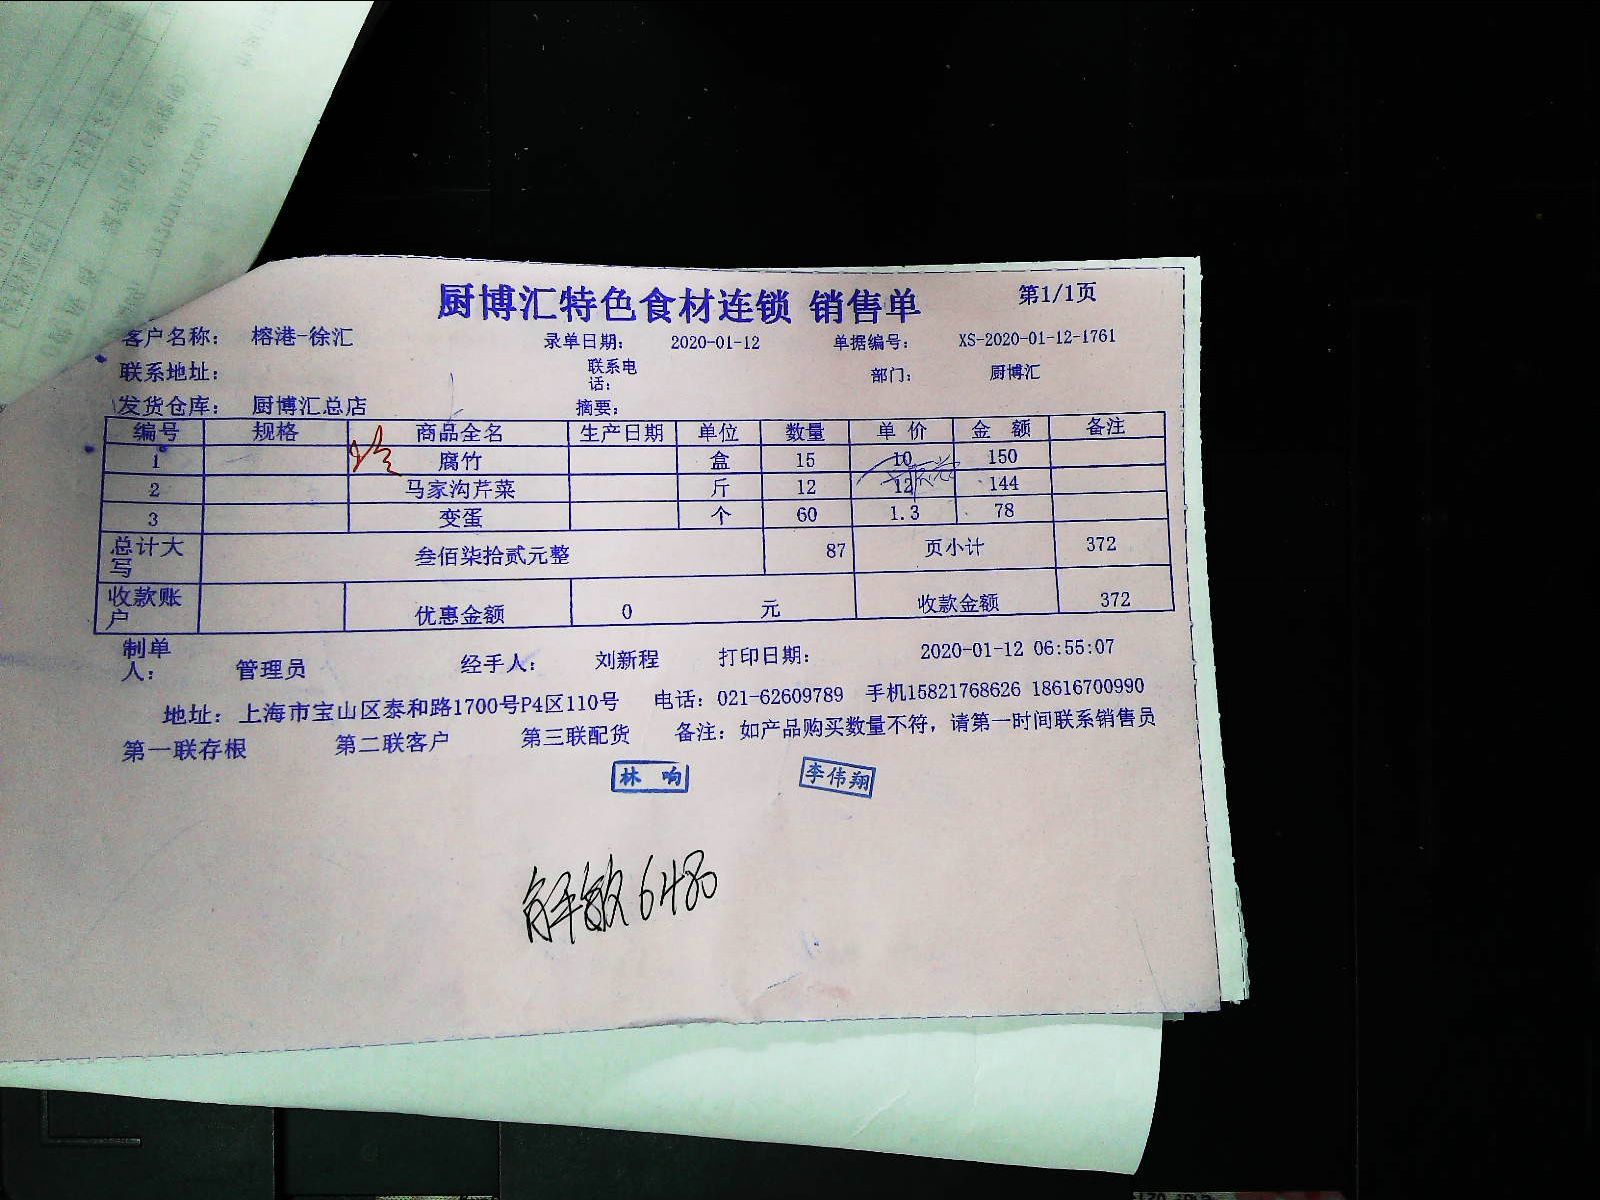 厨博汇特色食材连锁 销售单 第1/1页
客户名称： 榕港-徐汇 录单日期： 2020-01-12 单据编号： XS-2020-01-12-1761
联系地址： 联系电话： 部门： 厨博汇
发货仓库： 厨博汇总店 摘要：
编号 规格 商品全名 生产日期 单位 数量 单 价 金 额 备注
1 腐竹 盒 15 10 150
2 马家沟芹菜 斤 12 12 144
3 变蛋 个 60 1.3 78
总计大写 叁佰柒拾贰元整 87 页小计 372
收款账户 优惠金额 0 元 收款金额 372
制单人： 管理员 经手人： 刘新程 打印日期： 2020-01-12 06:55:07
地址：上海市宝山区泰和路1700号P4区110号 电话：021-62609789 手机15821768626 18616700990
第一联存根 第二联客户 第三联配货 备注：如产品购买数量不符，请第一时间联系销售员
林 响 李伟翔
解敏6480